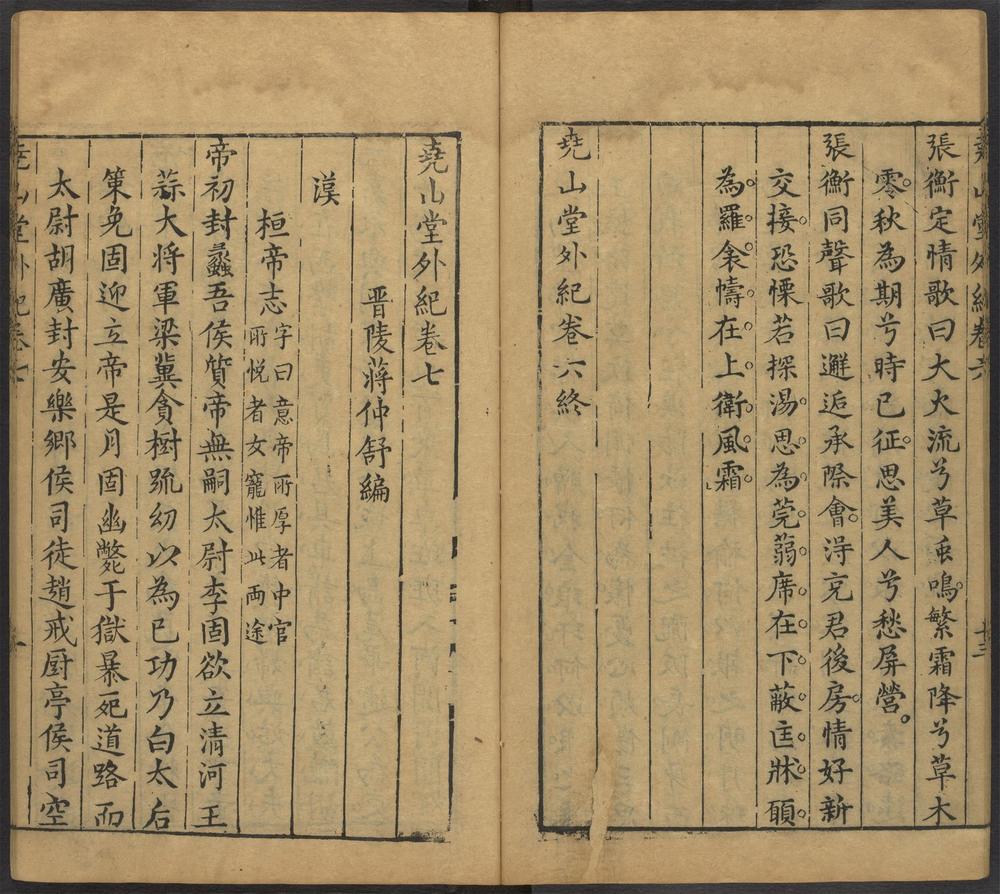 堯山堂外紀卷六
十三
張衡定情歌曰大火流兮草虫鳴繁霜降兮草木
零秋為期兮時已征思美人兮愁屏營
張衡同聲歌曰邂逅承際會淂充君後房情好新
交接恐慄若探湯思為莞蒻席在下蔽匡牀願
為羅衾幬在上衛風霜
堯山堂外紀卷六終
堯山堂外紀卷七
晋陵蔣仲舒編
漢
桓帝志
字曰意帝所厚者中官
所悅者女寵惟此両途
帝初封蠡吾侯質帝無嗣太尉李固欲立清河王
蒜大将軍梁冀貪樹疏幼以為已功乃白太后
策免固迎立帝是月固幽斃于獄暴死道路而
太尉胡廣封安樂鄉侯司徒趙戒厨亭侯司空
堯山堂外紀卷七
一